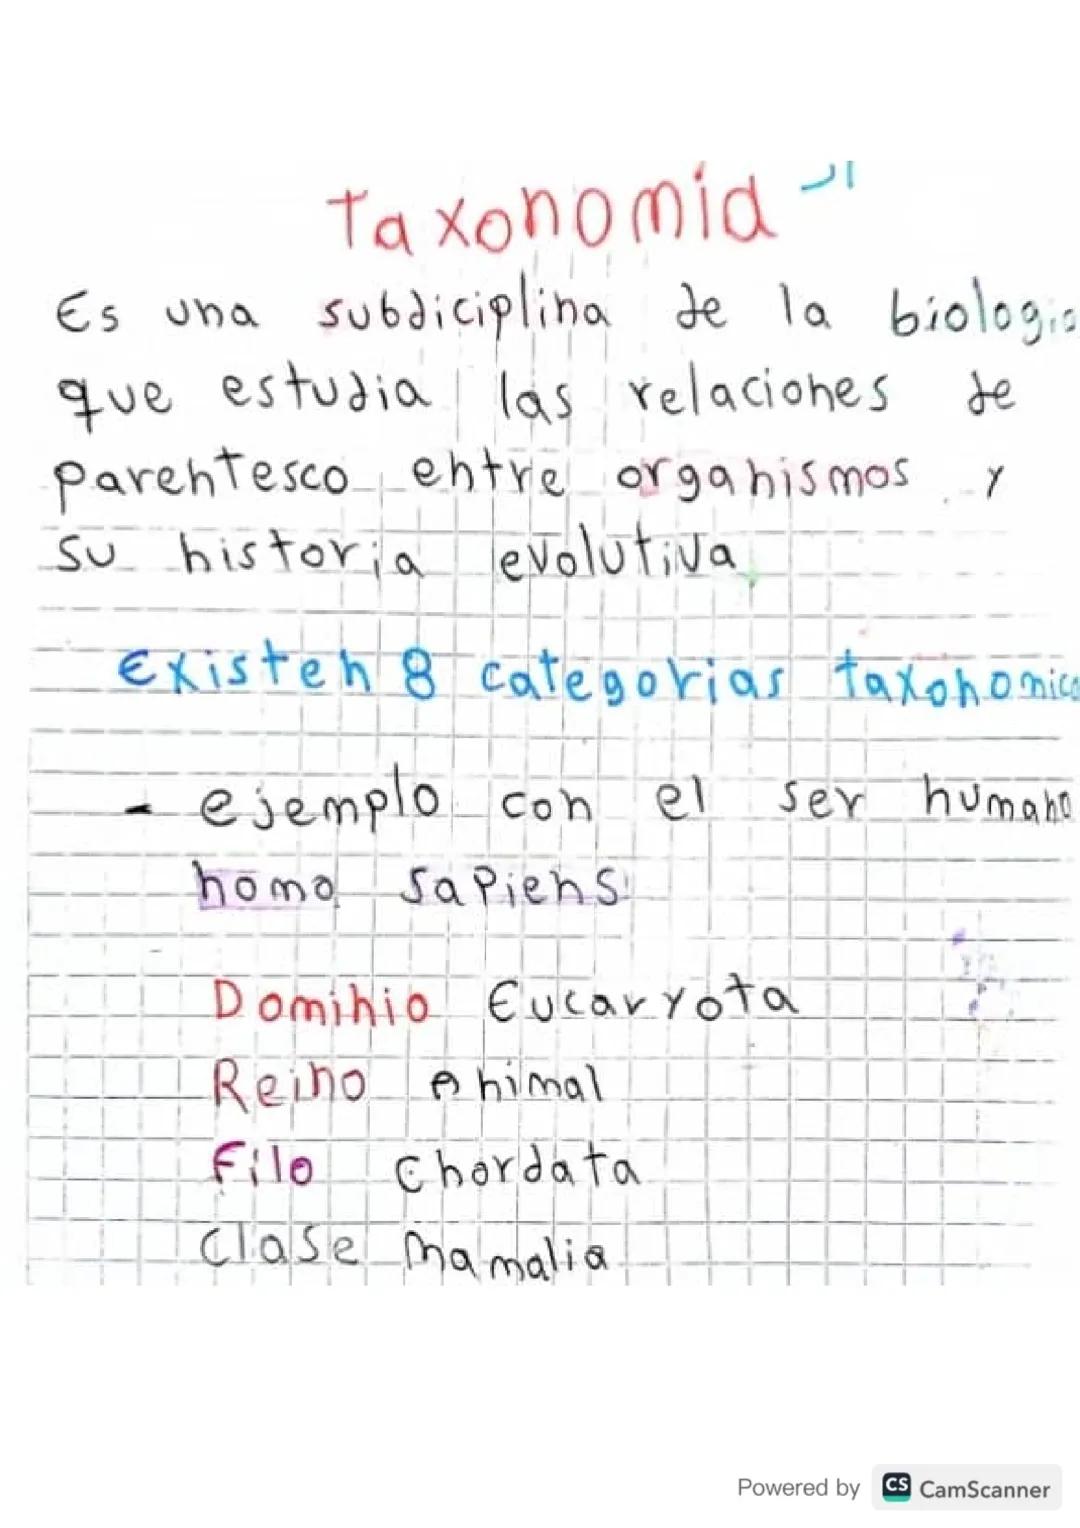 Taxonomía
Es una subdiciplina de la biologia
que estudia las relaciones de
parentesco entre organismos y
su historia evolutiva
Existen 8 categorias taxonomica
- ejemplo con el ser humano
homo sapiens
Dominio Eucaryota
Reino Animal
Filo Chordata
Clase Mamalia
Powered by CS CamScanner